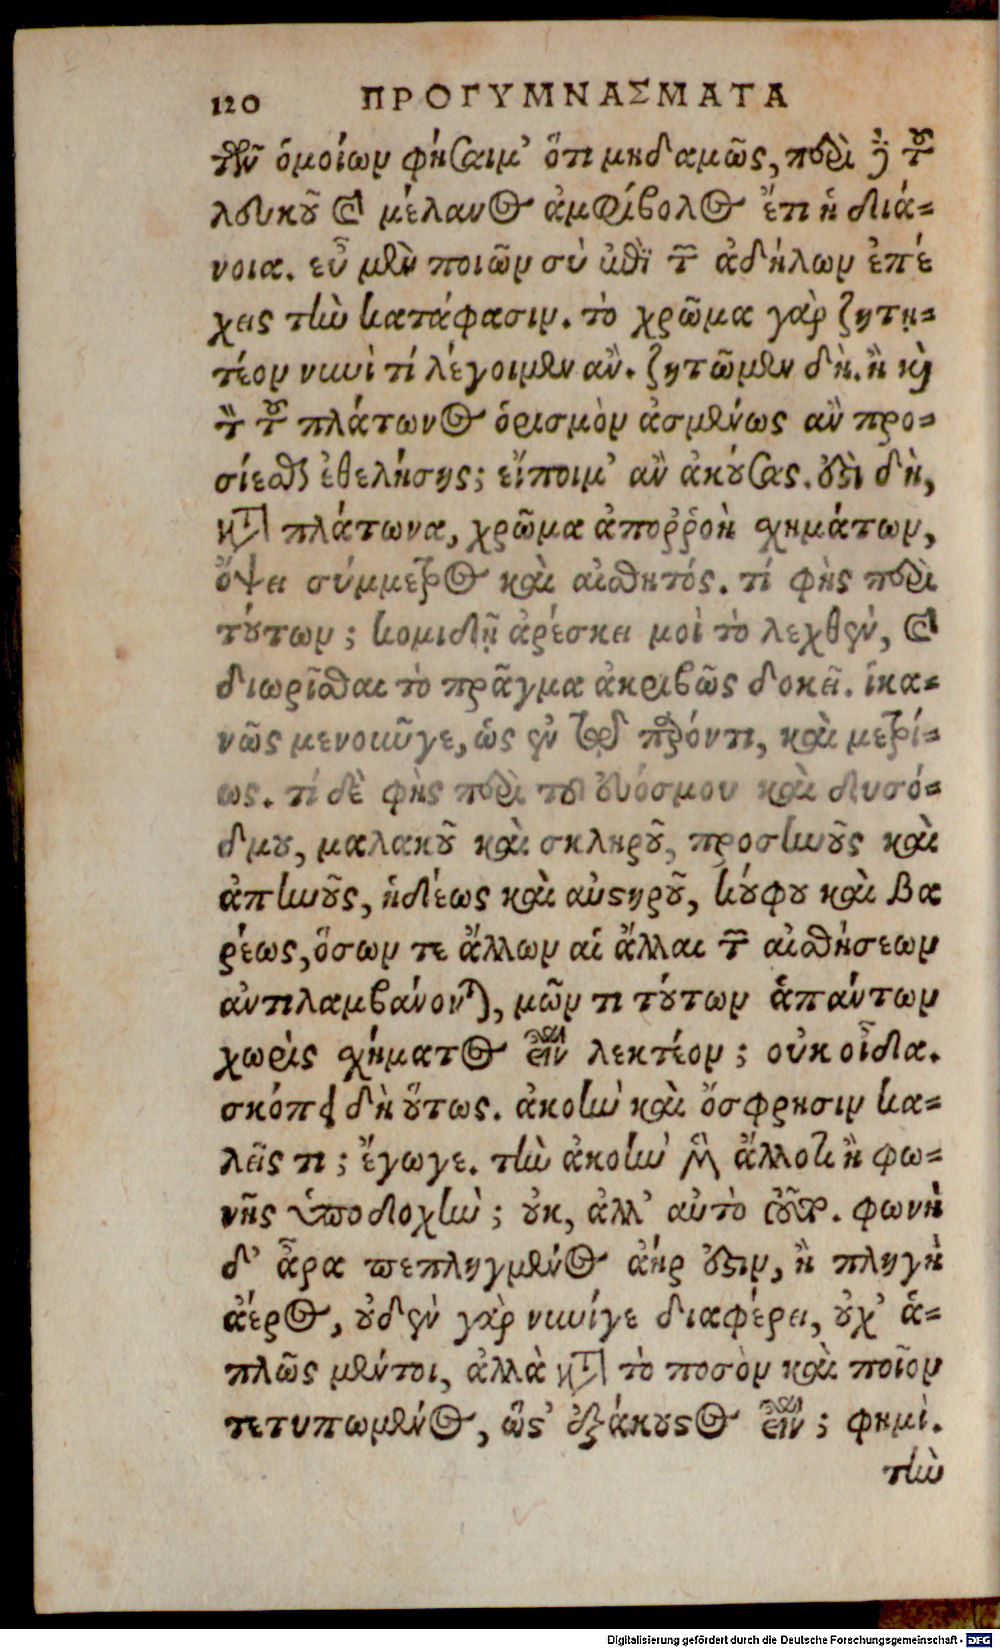 120 ΠΡΟΓΥΜΝΑΣΜΑΤΑ
τῶν ὁμοίων φήσαιμ' ὅτι μηδαμῶς, περὶ δὲ τοῦ
λευκοῦ καὶ μέλανος ἀμφίβολος ἔτι ἡ διά-
νοια. εὖ μὲν ποιῶν σὺ ἐπὶ τῶν ἀδήλων ἐπέ
χεις τὴν κατάφασιν. τὸ χρῶμα γὰρ ζητη-
τέον νυνὶ τί λέγοιμεν ἄν. ζητῶμεν δή. ἢ καὶ
τὸν τοῦ πλάτωνος ὁρισμὸν ἀσμένως ἂν προ-
σίεσθαι ἐθελήσῃς; εἴποιμ' ἂν ἀκούσας. ἔστι δὴ,
κατὰ πλάτωνα, χρῶμα ἀποῤῥοὴ σχημάτων,
ὄψει σύμμετρος καὶ αἰσθητός. τί φῂς περὶ
τούτων; κομιδῇ ἀρέσκει μοὶ τὸ λεχθὲν, καὶ
διωρῖσθαι τὸ πρᾶγμα ἀκριβῶς δοκεῖ. ἱκα-
νῶς μενοῦνγε, ὡς ἐν τῷ παρόντι, καὶ μετρί-
ως. τί δὲ φῂς περὶ τοῦ εὐόσμου καὶ δυσό-
δμου, μαλακοῦ καὶ σκληροῦ, προσηνοῦς καὶ
ἀπηνοῦς, ἡδέως καὶ αὐστηροῦ, κούφου καὶ βα
ρέως, ὅσων τε ἄλλων αἱ ἄλλαι τῶν αἰσθήσεων
ἀντιλαμβάνονται, μῶν τι τούτων ἁπάντων
χωρὶς σχήματος εἶναι λεκτέον; οὐκ οἶδα.
σκόπει δὴ οὕτως. ἀκοὴν καὶ ὄσφρησιν κα-
λεῖς τι; ἔγωγε. τὴν ἀκοὴν μὴ ἄλλοτι ἢ φω-
νῆς ὑποδοχὴν; οὐκ, ἀλλ' αὐτὸ τοῦτο. φωνὴ
δ' ἆρα πεπληγμένος ἀήρ ἐστιν, ἢ πληγὴ
ἀέρος, οὐδὲν γὰρ νυνίγε διαφέρει, οὐχ' ἁ-
πλῶς μέντοι, ἀλλὰ κατὰ τὸ ποσὸν καὶ ποῖον
τετυπωμένος, ὥστ' ἐξάκουστος εἶναι; φημὶ.
τὴν
Digitalisierung gefördert durch die Deutsche Forschungsgemeinschaft - DFG